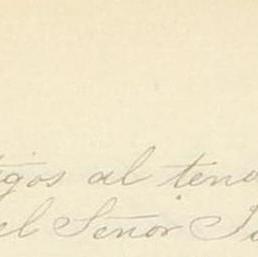 tigos al teno
el Señor Ju